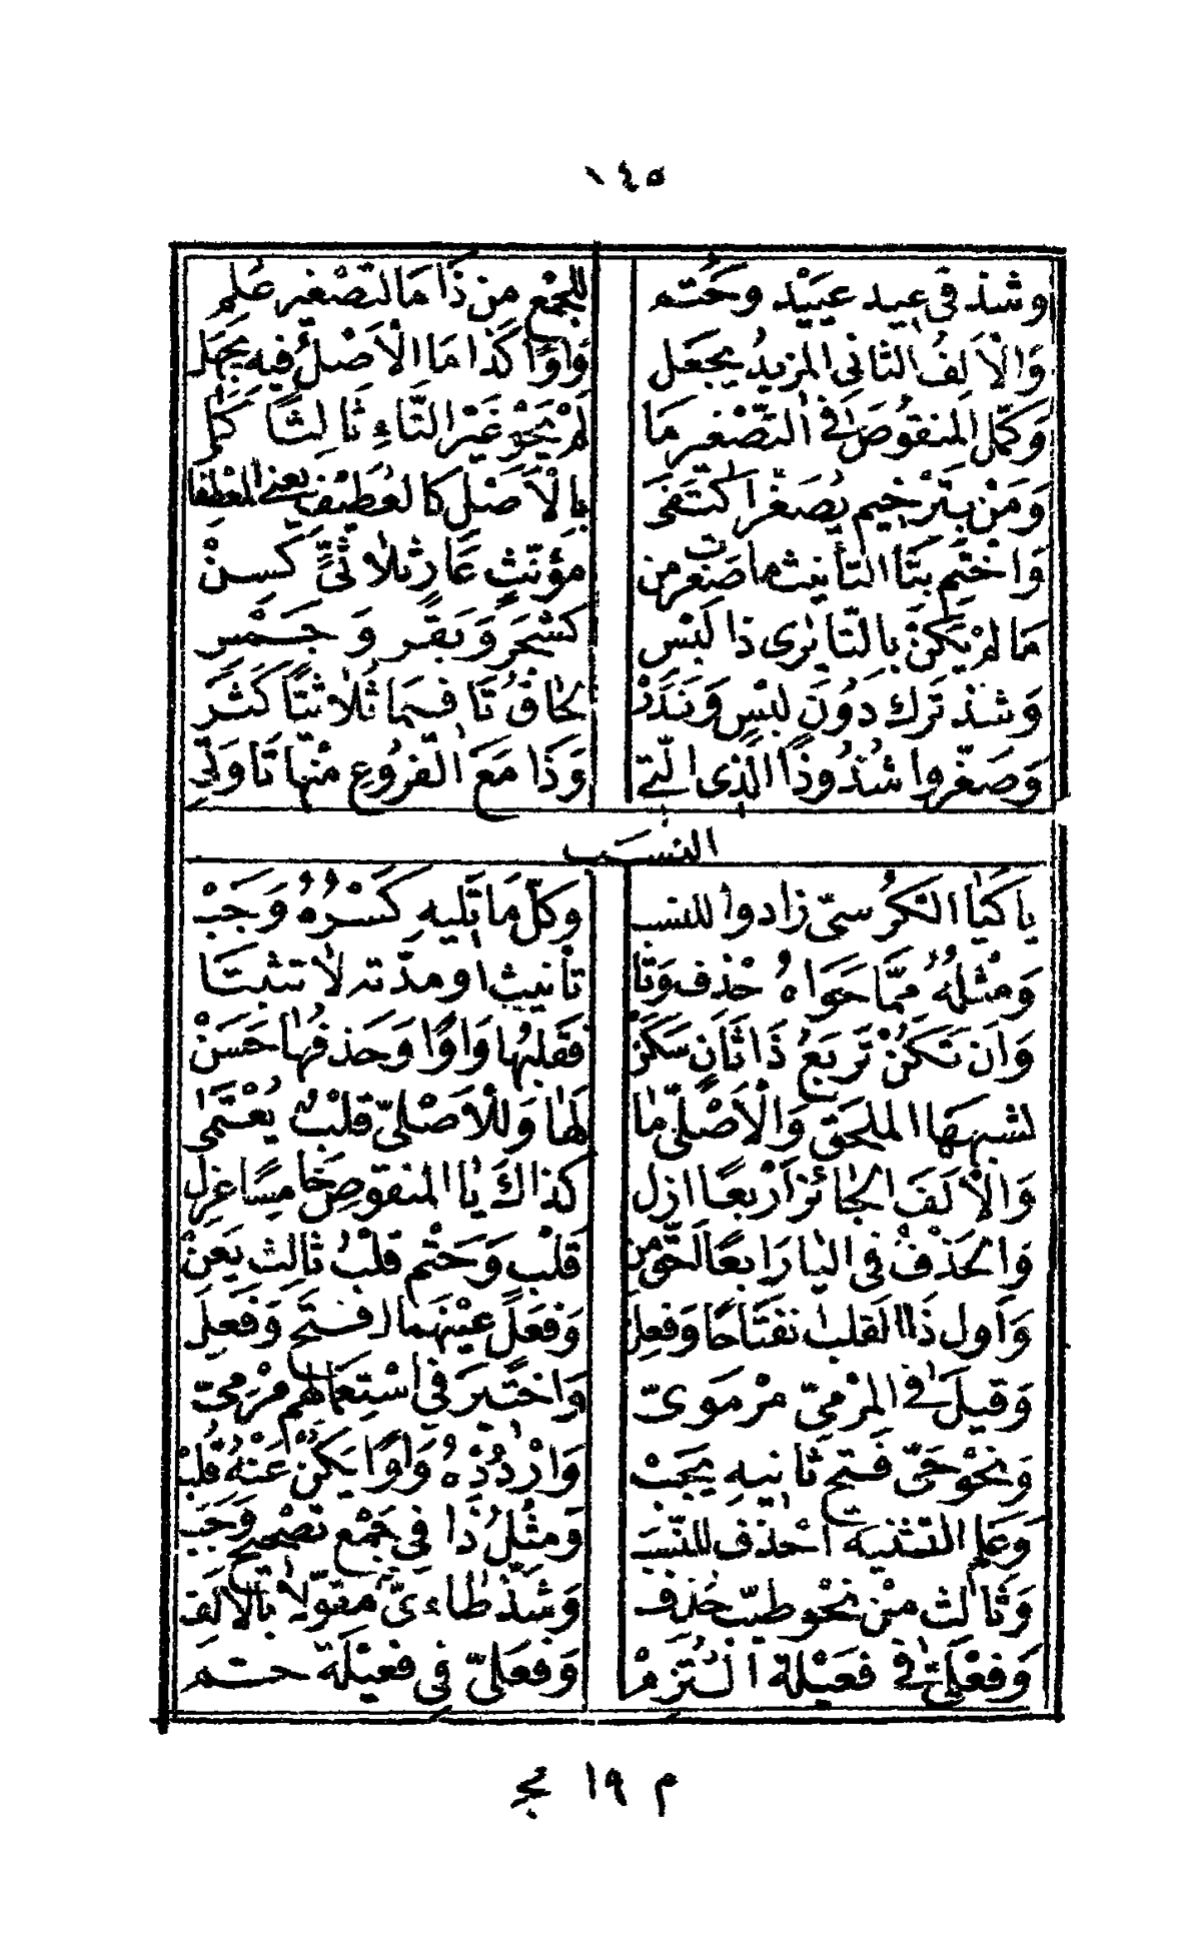 ١٤٥
وشذ في عيد عييد وحتم للجمع من ذا ما لتصغير علم
والألف الثاني المزيد يجعل واوا كذا ما الأصل فيه يجهل
وكمل المنقوص في التصغير ما لم يحو غير التاء ثالثا كما
ومن بترخيم يصغر اكتفى بالأصل كالعطيف يعني المعطفا
واختم بتا التأنيث ما صغرت من مؤنث عار ثلاثي كسن
ما لم يكن بالتا يرى ذا لبس كشجر وبقر وخمس
وشذ ترك دون لبس وندر لحاق تا فيما ثلاثيا كثر
وصغروا شذوذا الذي التي وذا مع الفروع منها تا وتي
النسب
يا كيا الكرسي زادوا للنسب وكل ما تليه كسره وجب
ومثله مما حواه احذف وتا تأنيث او مدته لا تثبتا
وان تكن تربع ذا ثان سكن فقلبها واوا وحذفها حسن
لشبهها الملحق والأصلي ما لها وللأصلي قلب يعتمى
والألف الجائز أربعا ازل كذاك يا المنقوص خامسا عزل
والحذف في اليا رابعا أحق من قلب وحتم قلب ثالث يعن
وأول ذا القلب انفتاحا وفعل وفعل عينهما افتح وفعل
وقيل في المرمي مرموي واختير في استعمالهم مرمي
ونحو حي فتح ثانيه يجب واردده واوا يكن عنه قلب
وعلم التثنيه احذف للنسب ومثل ذا في جمع تصحيح وجب
وثالث من نحو طيب حذف وشذ طاءي مقولا بالالف
وفعلي في فعيلة التزم وفعلي في فعيلة حتم
م ١٩ مج